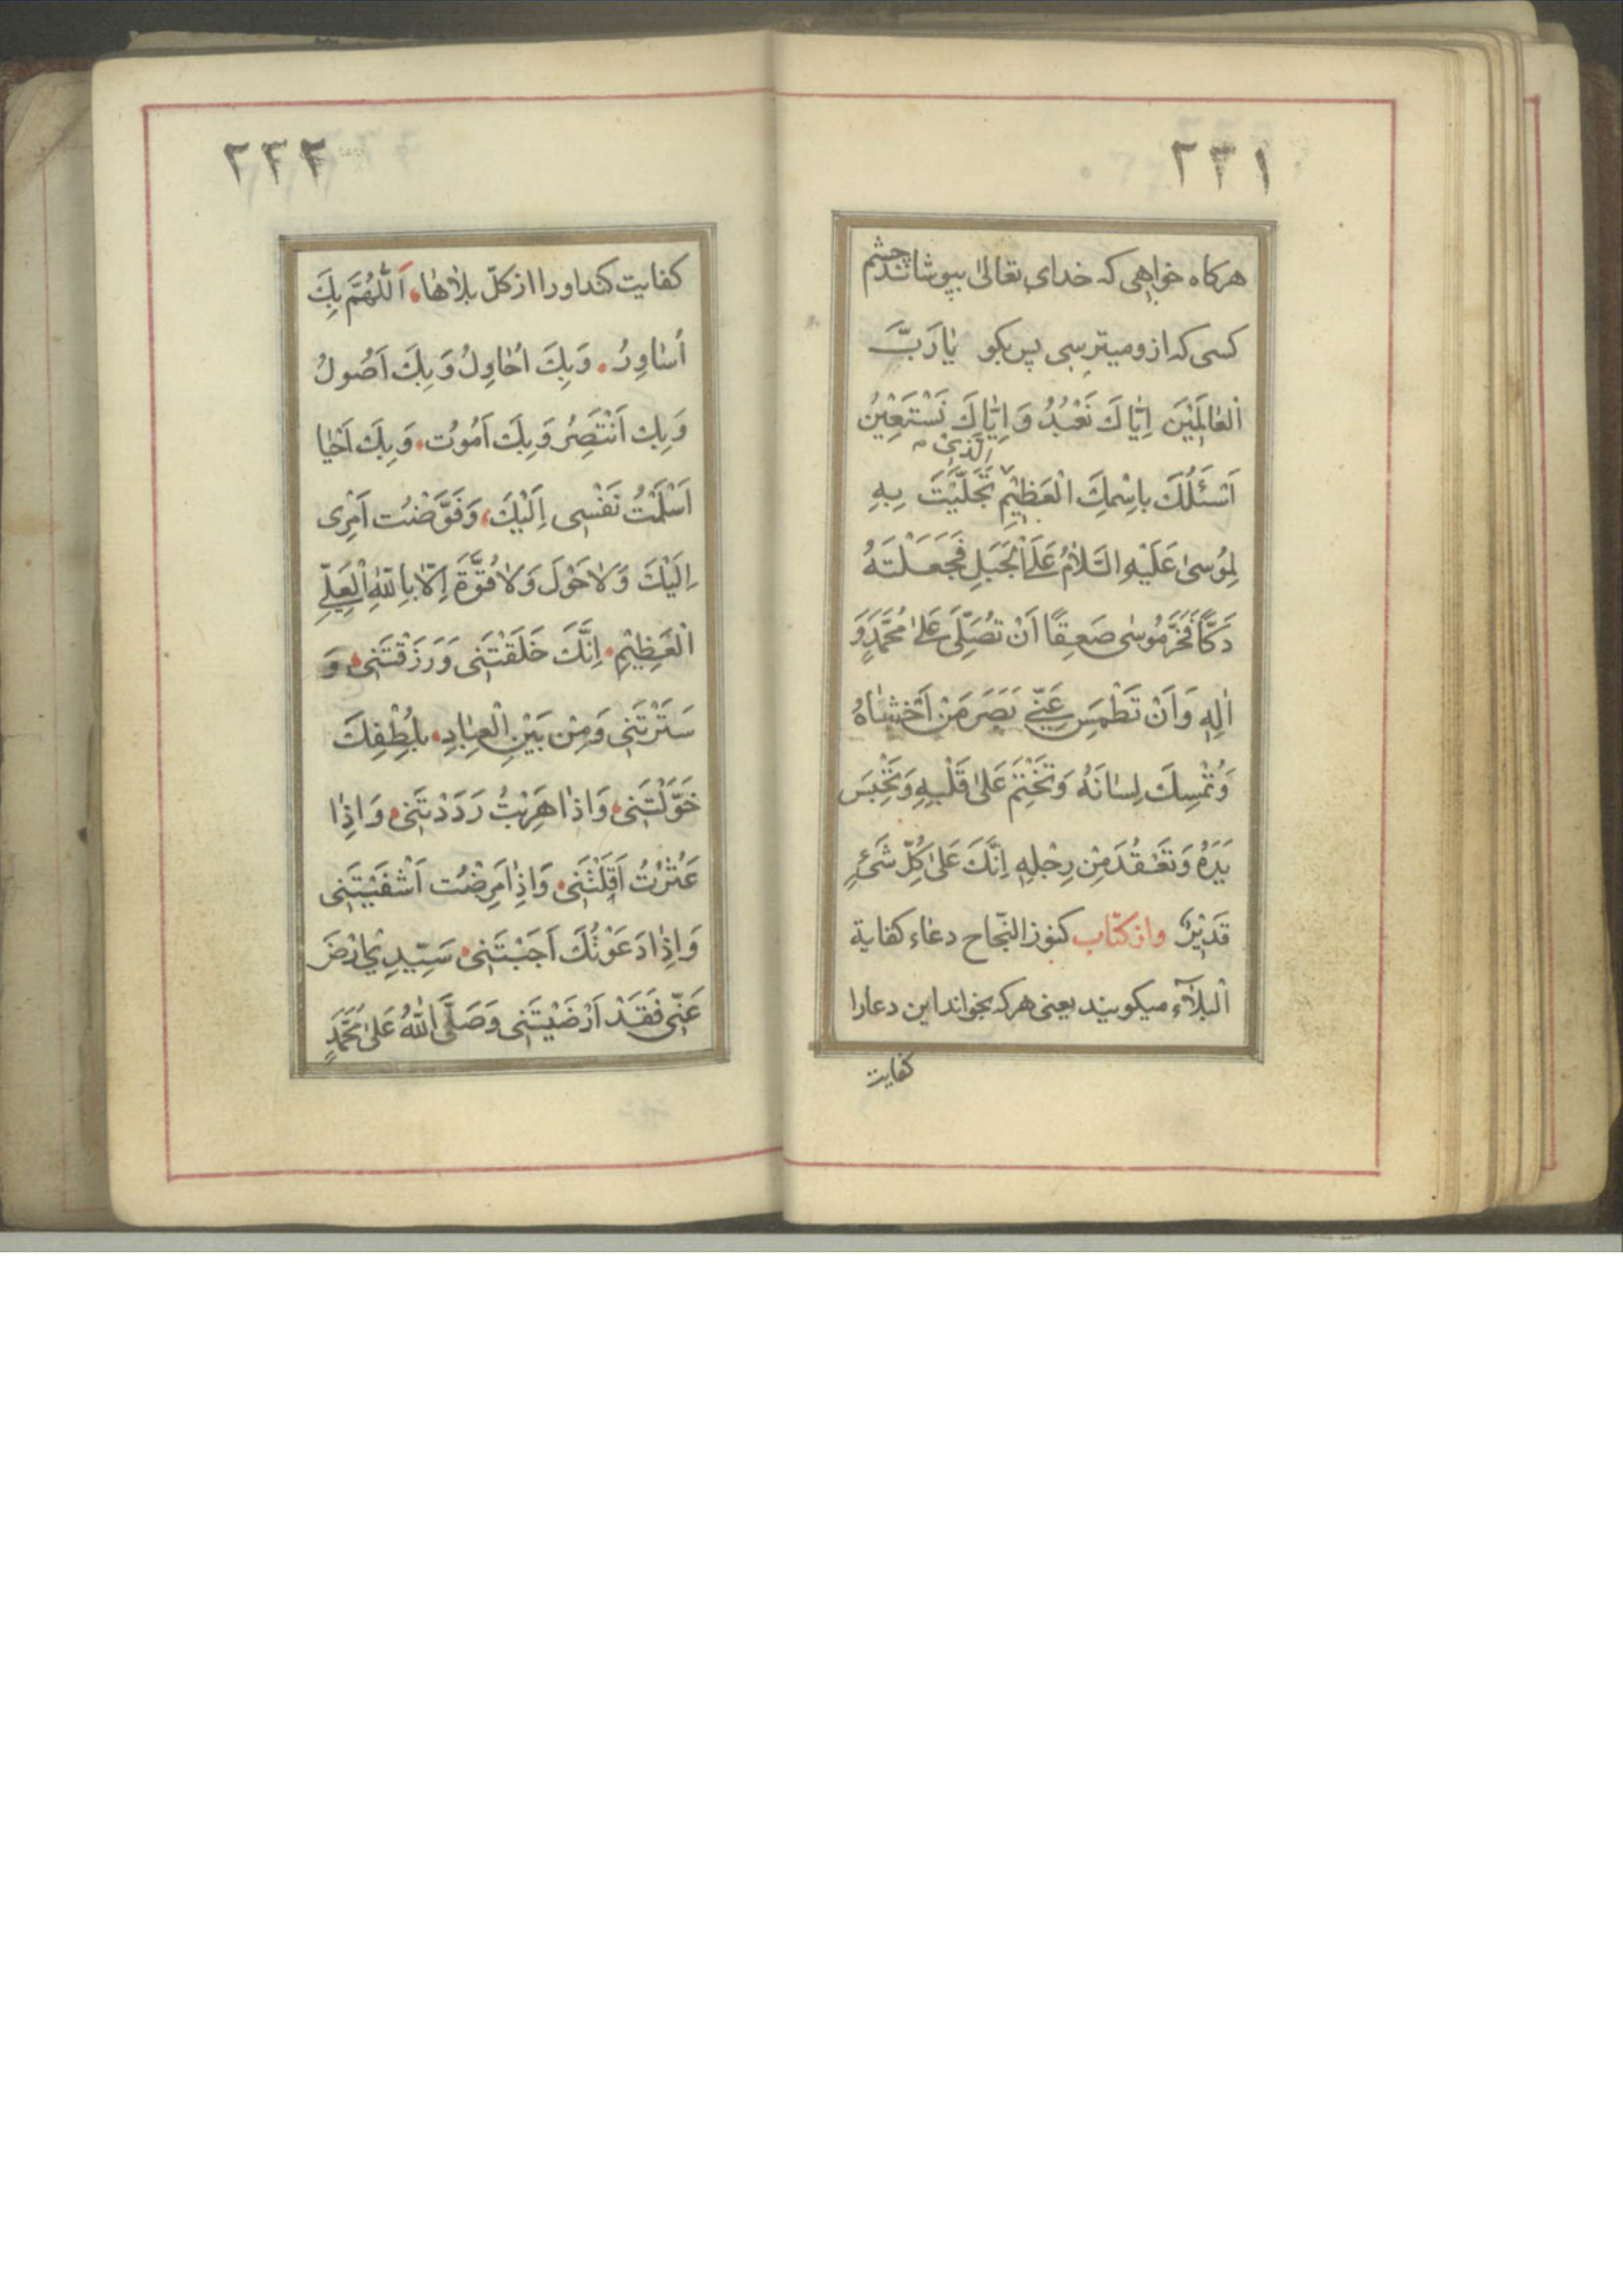 ٢٣١
هرکاه خواهی که خدای تعالیٰ بپوشاند چشم
کسی که از و میترسی پس بکو یٰا رَبَّ
الْعٰالَمِيْنَ اِيّٰاكَ نَعْبُدُ وَ اِيّٰاكَ نَسْتَعِيْنُ
اَسْئَلُكَ بِاسْمِكَ الْعَظِيْمِ الَّذِیْ تَجَلَّيْتَ بِهِ
لِمُوسىٰ عَلَيْهِ السَّلٰامُ عَلَی الْجَبَلِ فَجَعَلْتَهُ
دَكًّا فَخَرَّ مُوسٰى صَعِقًا اَنْ تُصَلِّىَ عَلىٰ مُحَمَّدٍ وَ
اٰلِهِ وَ اَنْ تَطْمِسَ عَنّٖى بَصَرَ مَنْ اَخْشٰاهُ
وَ تُمْسِكَ لِسٰانَهُ وَ تَخْتِمَ عَلىٰ قَلْبِهِ وَ تَحْبِسَ
يَدَهُ وَ تَعْقُدَ مِنْ رِجْلِهِ اِنَّكَ عَلىٰ كُلِّ شَیْءٍ
قَدِيْرٌ واز کتاب کنوز النّجاح دعاء کفایة
الْبَلٰآءِ میکویند یعنی هر که بخواند این دعا را
کفایت
٢٣٢
کفایت کند او را از کلّ بلاٰهٰا اَللّٰهُمَّ بِكَ
اُسٰاوِرُ وَ بِكَ اُحٰاوِلُ وَ بِكَ اَصُولُ
وَ بِكَ اَنْتَصِرُ وَ بِكَ اَمُوتُ وَ بِكَ اَحْيٰا
اَسْلَمْتُ نَفْسِى اِلَيْكَ وَ فَوَّضْتُ اَمْرِى
اِلَيْكَ وَ لاٰ حَوْلَ وَ لاٰ قُوَّةَ اِلّٰا بِاللّٰهِ الْعَلِىِّ
الْعَظِيْمِ اِنَّكَ خَلَقْتَنِى وَ رَزَقْتَنِى وَ
سَتَرْتَنِى وَ مِنْ بَيْنِ الْعِبٰادِ بِلُطْفِكَ
خَوَّلْتَنِى وَ اِذٰا هَرَبْتُ رَدَدْتَنِى وَ اِذٰا
عَثَرْتُ اَقَلْتَنِى وَ اِذٰا مَرِضْتُ اَشْفَيْتَنِى
وَ اِذٰا دَعَوْتُكَ اَجَبْتَنِى سَيِّدِیْ اِرْضَ
عَنّٖى فَقَدْ اَرْضَيْتَنِى وَ صَلَّى اللّٰهُ عَلىٰ مُحَمَّدٍ